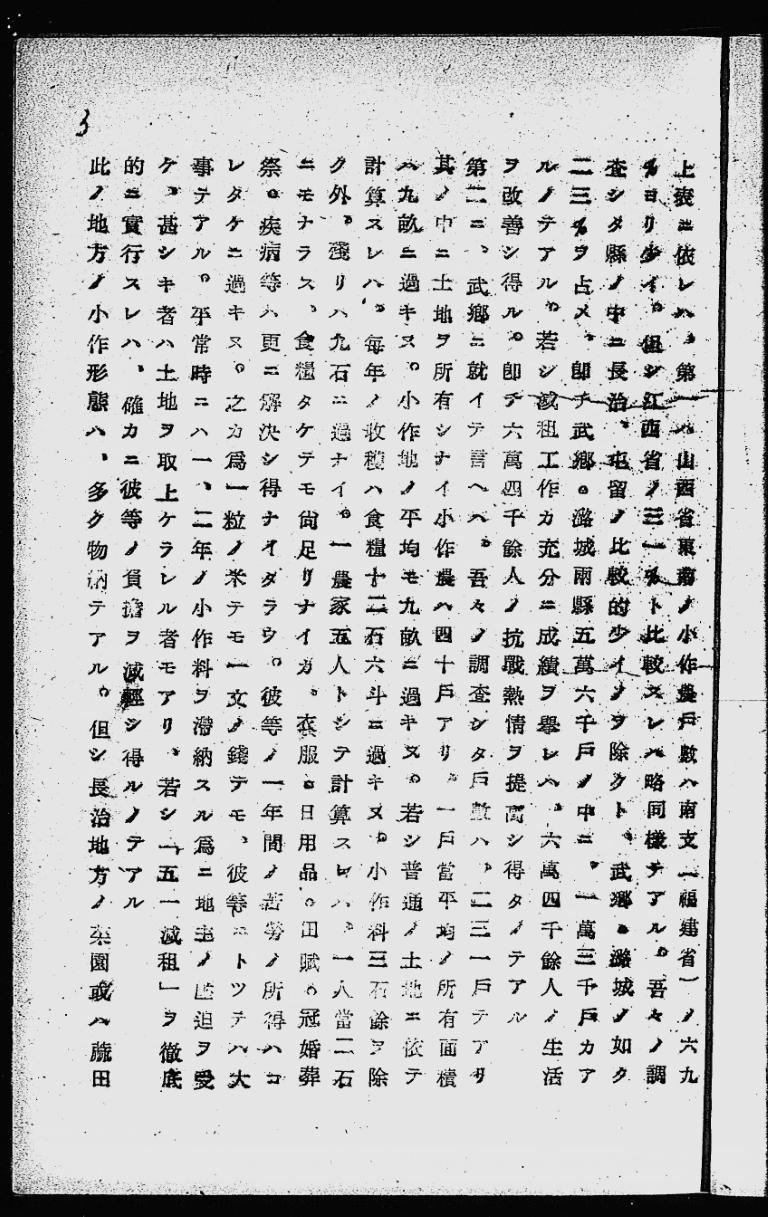 上表ニ依レハ、第一ハ山西省東南ノ小作農戸數ハ南支(福建省)ノ六九
%ヨリ少イ。但シ江西省ノ三一%ト比較スレハ略同様テアル。吾々ノ調
査シタ縣ノ中ニ長治、屯留ノ比較的少イノヲ除クト、武鄕。潞城ノ如ク
二三%ヲ占メ、卽チ武鄕。潞城兩縣五萬六千戸ノ中ニ、一萬三千戸カア
ルノテアル。若シ減租工作カ充分ニ成績ヲ擧レハ、六萬四千餘人ノ生活
ヲ改善シ得ル。卽チ六萬四千餘人ノ抗戰熱情ヲ提高シ得タノテアル
第二ニ、武鄕ニ就イテ言ヘハ。吾々ノ調査シタ戸數ハ、二三一戸テアリ
其ノ中ニ土地ヲ所有シナイ小作農ハ四十戸アリ。一戸當平均ノ所有面積
ハ九畝ニ過キヌ。小作地ノ平均モ九畝ニ過キヌ。若シ普通ノ土地ニ依テ
計算スレハ。每年ノ收穫ハ食糧十二石六斗ニ過キヌ。小作料三石餘ヲ除
ク外。殘リハ九石ニ過ナイ。一農家五人トシテ計算スレハ、一人當二石
ニモナラス、食糧タケテモ尙足リナイカ。衣服。日用品。田賦。冠婚葬
祭。疾病等ハ更ニ解決シ得ナイタラウ。彼等ノ一年間ノ苦勞ノ所得ハコ
レタケニ過キヌ。之カ爲一粒ノ米テモ一文ノ錢テモ、彼等ニトツテハ大
事テアル。平常時ニハ一、二年ノ小作料ヲ滯納スル爲ニ地主ノ壓迫ヲ受
ケ、甚シキ者ハ土地ヲ取上ケラレル者モアリ、若シ「五一減租」ヲ徹底
的ニ實行スレハ、確カニ彼等ノ負擔ヲ減輕シ得ルノテアル
此ノ地方ノ小作形態ハ、多ク物納テアル。但シ長治地方ノ菜園或ハ蔬田
3